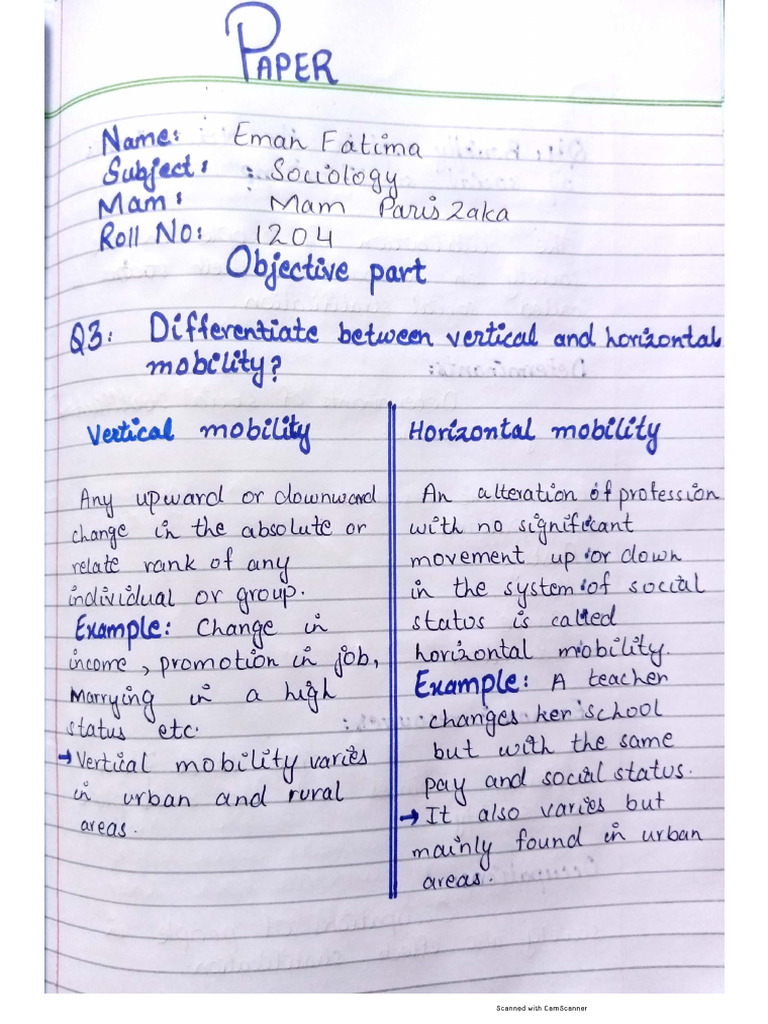 PAPER
Name: Eman Fatima
Subject: : Sociology
Mam: Mam Paris Zaka
Roll No: 1204
Objective part
Q3: Differentiate between vertical and horizontal
mobility?
Vertical mobility
Any upward or downward
change in the absolute or
relate rank of any
individual or group.
Example: Change in
income, promotion in job,
Marrying in a high
status etc.
→ Vertical mobility varies
in urban and rural
areas.
Horizontal mobility
An alteration of profession
with no significant
movement up or down
in the system of social
status is called
horizontal mobility.
Example: A teacher
changes her school
but with the same
pay and social status.
→ It also varies but
mainly found in urban
areas.
Scanned with CamScanner